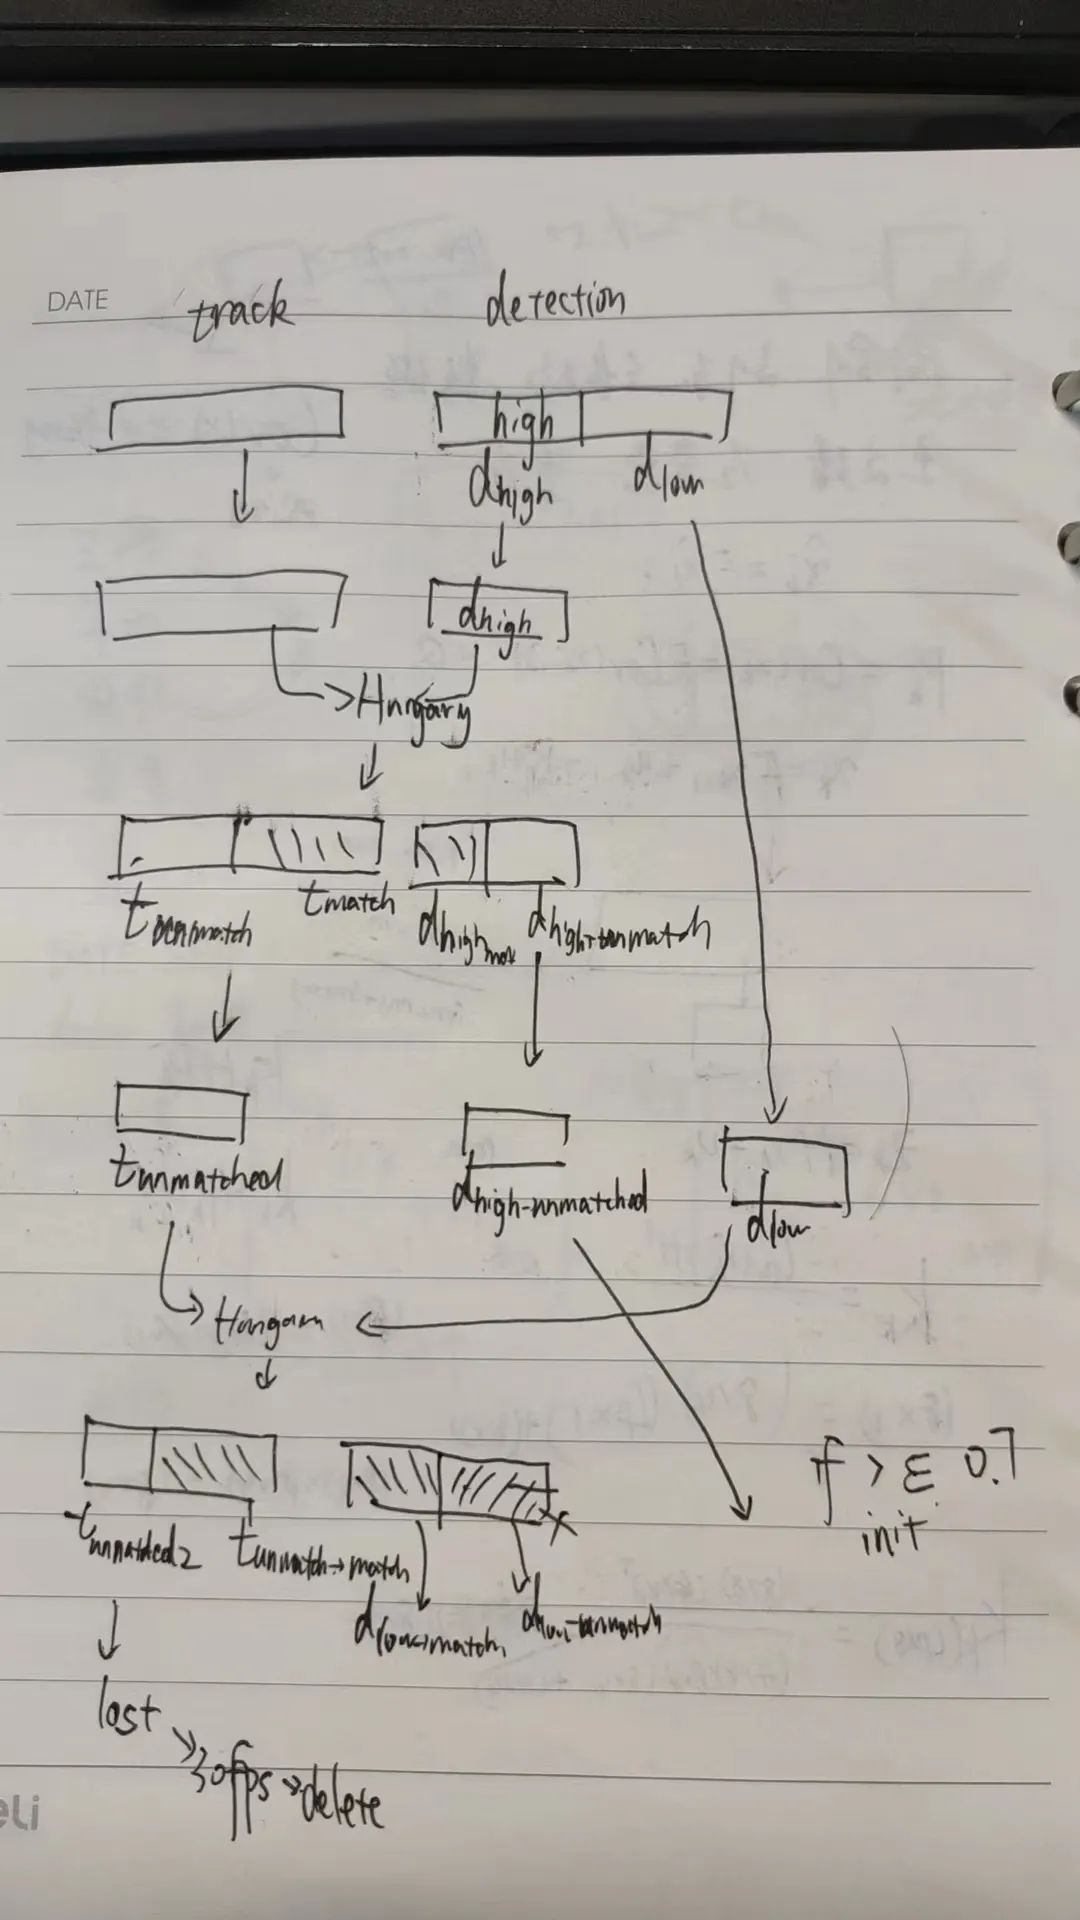 DATE
track detection
high
dhigh dlow
dhigh
Hungary
tunmatch tmatch dhigh dhigh-unmatch
tunmatched dhigh-unmatched dlow
if > ε 0.7
init
tunmatched2 tunmatch→match
dlow→match dlow-unmatch
lost
30fps → delete
eli